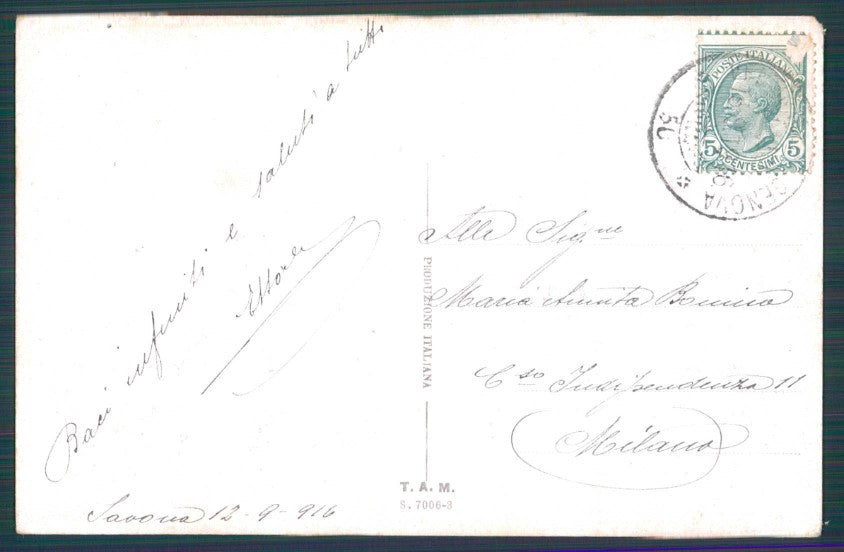 Baci infiniti e saluti a tutti
Ettore
Savona 12-9-916
PRODUZIONE ITALIANA
T. A. M.
S. 7006-3
POSTE ITALIANE
5 CENTESIMI 5
GENOVA
Alle Sig.ne
Maria Annita Bonino
C.so Indipendenza 11
Milano